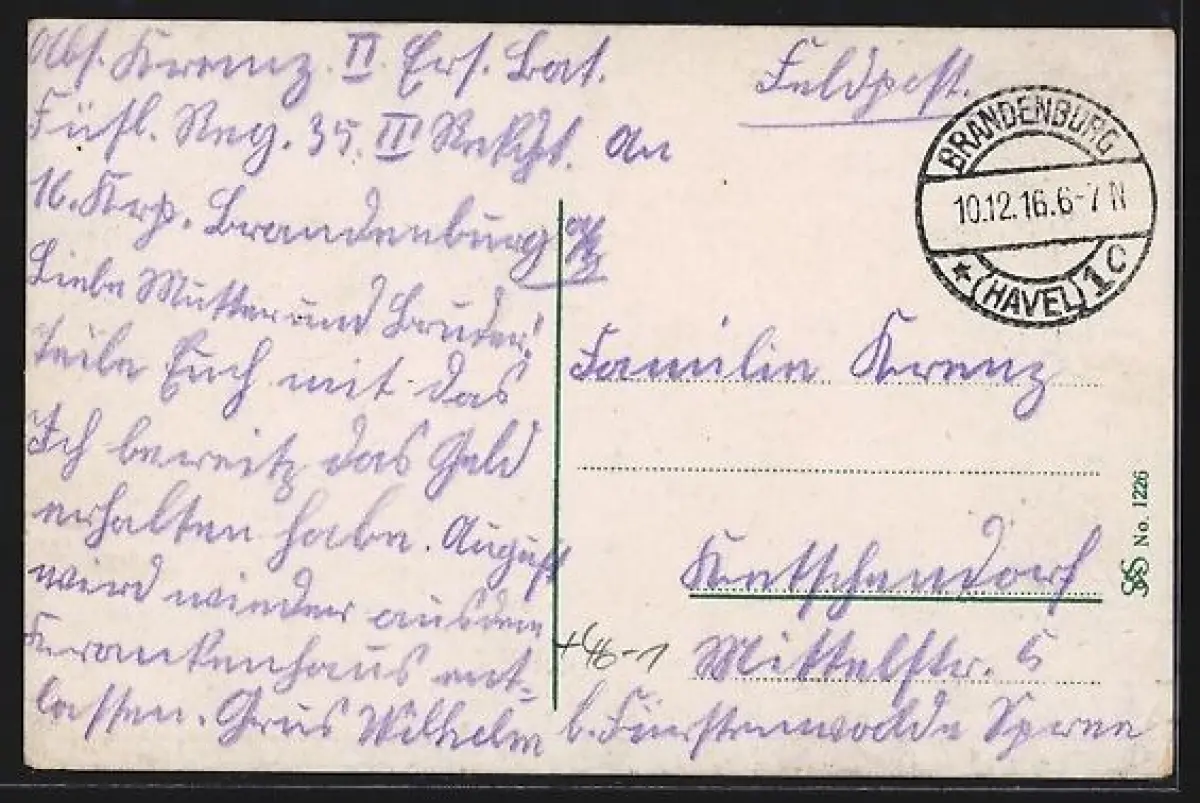 Abs. Krenz. II. Ers. Bat.
Füsl. Reg. 35. III Rekrt.
16. Krp. Brandenburg a/H
Liebe Mutter und Bruder!
teile Euch mit das
Ich bereitz das Geld
erhalten habe. August
wird wieder aus dem
Krankenhaus ent-
lassen. Grus Wilhelm
Feldpost.
BRANDENBURG
10.12.16.6-7 N
* (HAVEL) 1
An
Familie Krenz
Ketschendorf
Mittelstr. 5
b. Fürstenwalde Spree
No. 1226